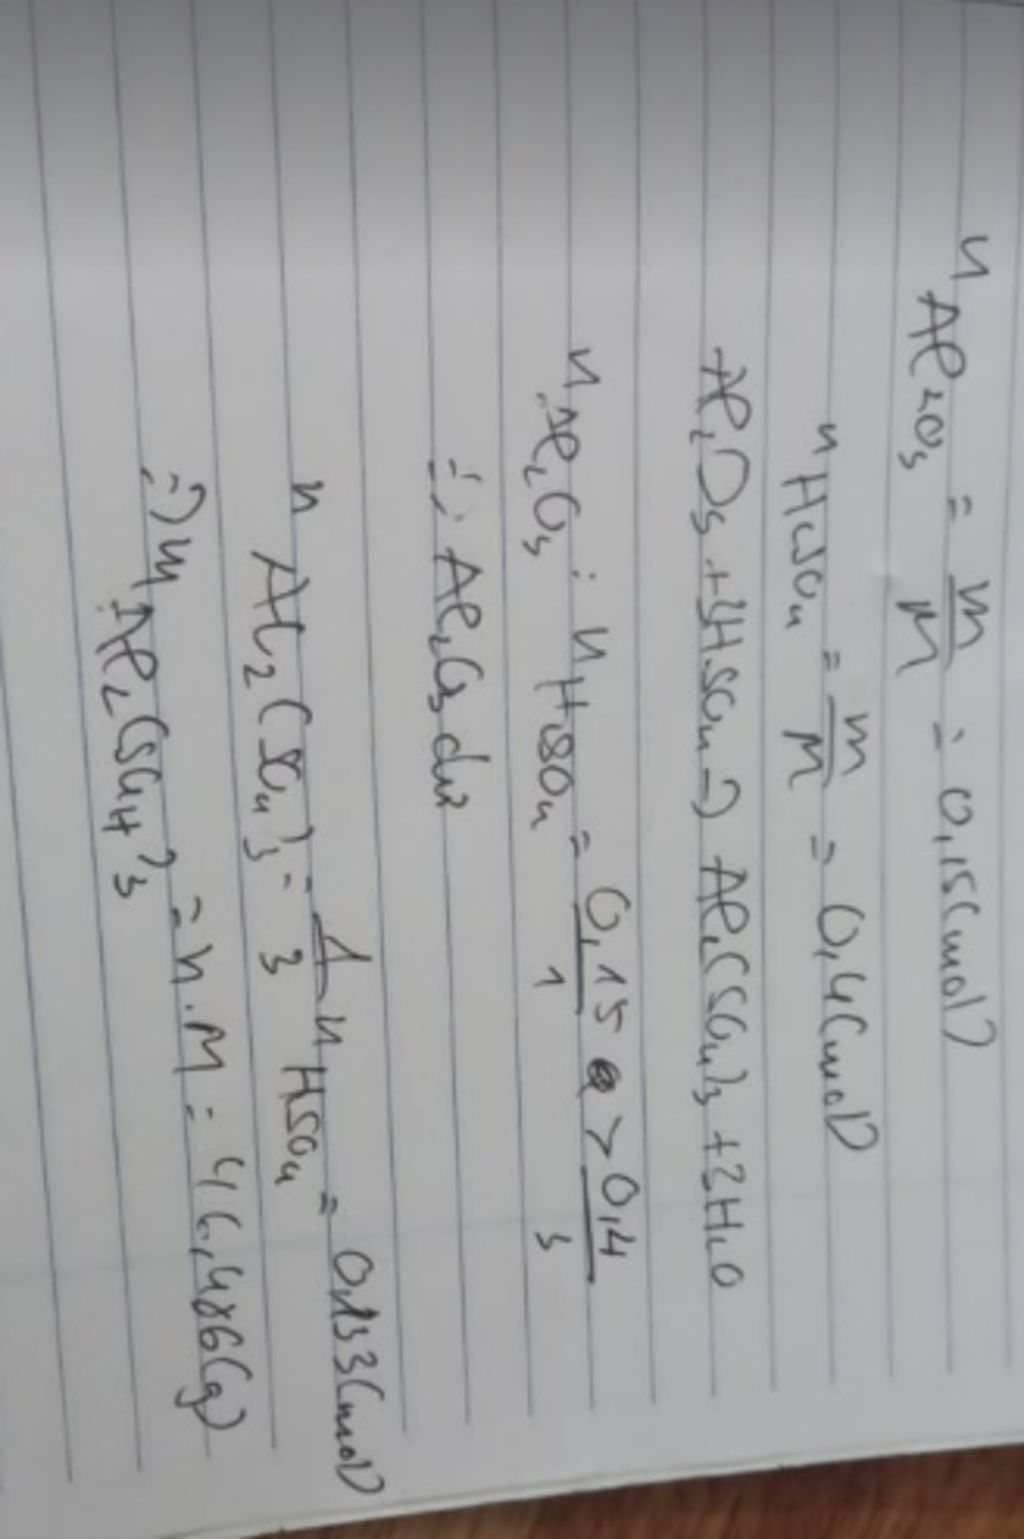 n Al2O3 = m/M = 0,15(mol)
n H2SO4 = m/M = 0,4(mol)
Al2O3 + 3H2SO4 => Al2(SO4)3 + 3H2O
n Al2O3 : n H2SO4 = 0,15/1 > 0,4/3
=> Al2O3 dư
n Al2(SO4)3 = 1/3 n H2SO4 = 0,133(mol)
=> m Al2(SO4)3 = n.M = 46,486(g)